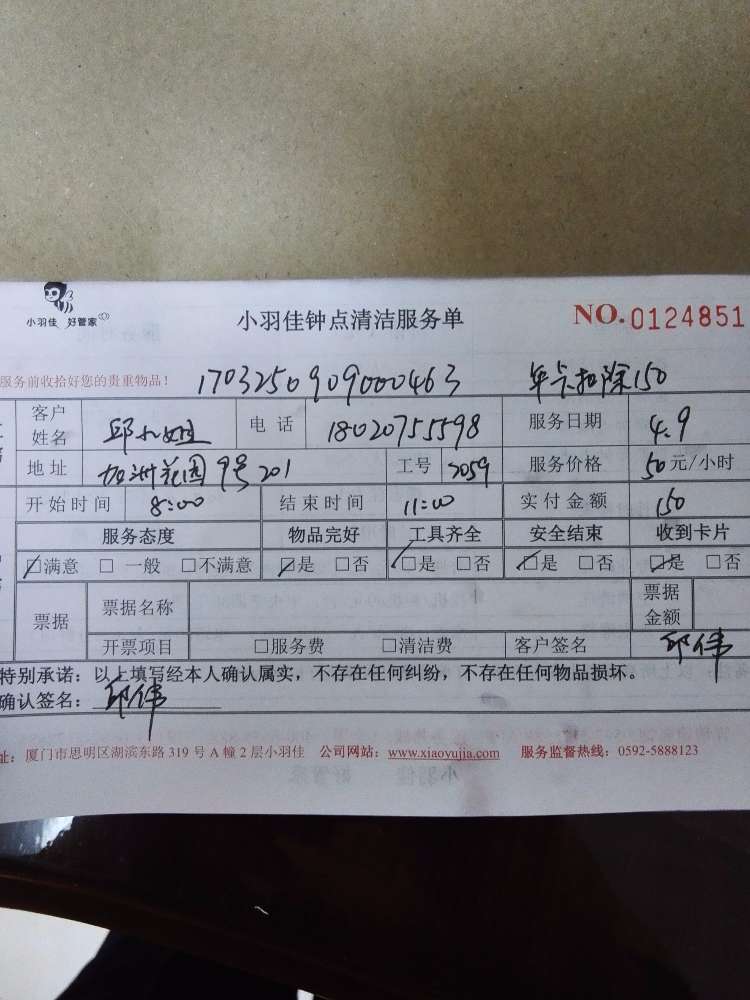 小羽佳 好管家
小羽佳钟点清洁服务单
NO.0124851
服务前收拾好您的贵重物品！ 1703250909000463 年卡扣除150
客户姓名 邱小姐 电话 18020755598 服务日期 4.9
地址 加洲花园9号201 工号 2059 服务价格 50元/小时
开始时间 8:00 结束时间 11:00 实付金额 150
服务态度 物品完好 工具齐全 安全结束 收到卡片
☑满意 □一般 □不满意 ☑是 □否 ☑是 □否 ☑是 □否 ☑是 □否
票据 票据名称 票据金额
开票项目 □服务费 □清洁费 客户签名 邱伟
特别承诺：以上填写经本人确认属实，不存在任何纠纷，不存在任何物品损坏。
确认签名：邱伟
址：厦门市思明区湖滨东路319号A幢2层小羽佳 公司网站：www.xiaoyujia.com 服务监督热线：0592-5888123